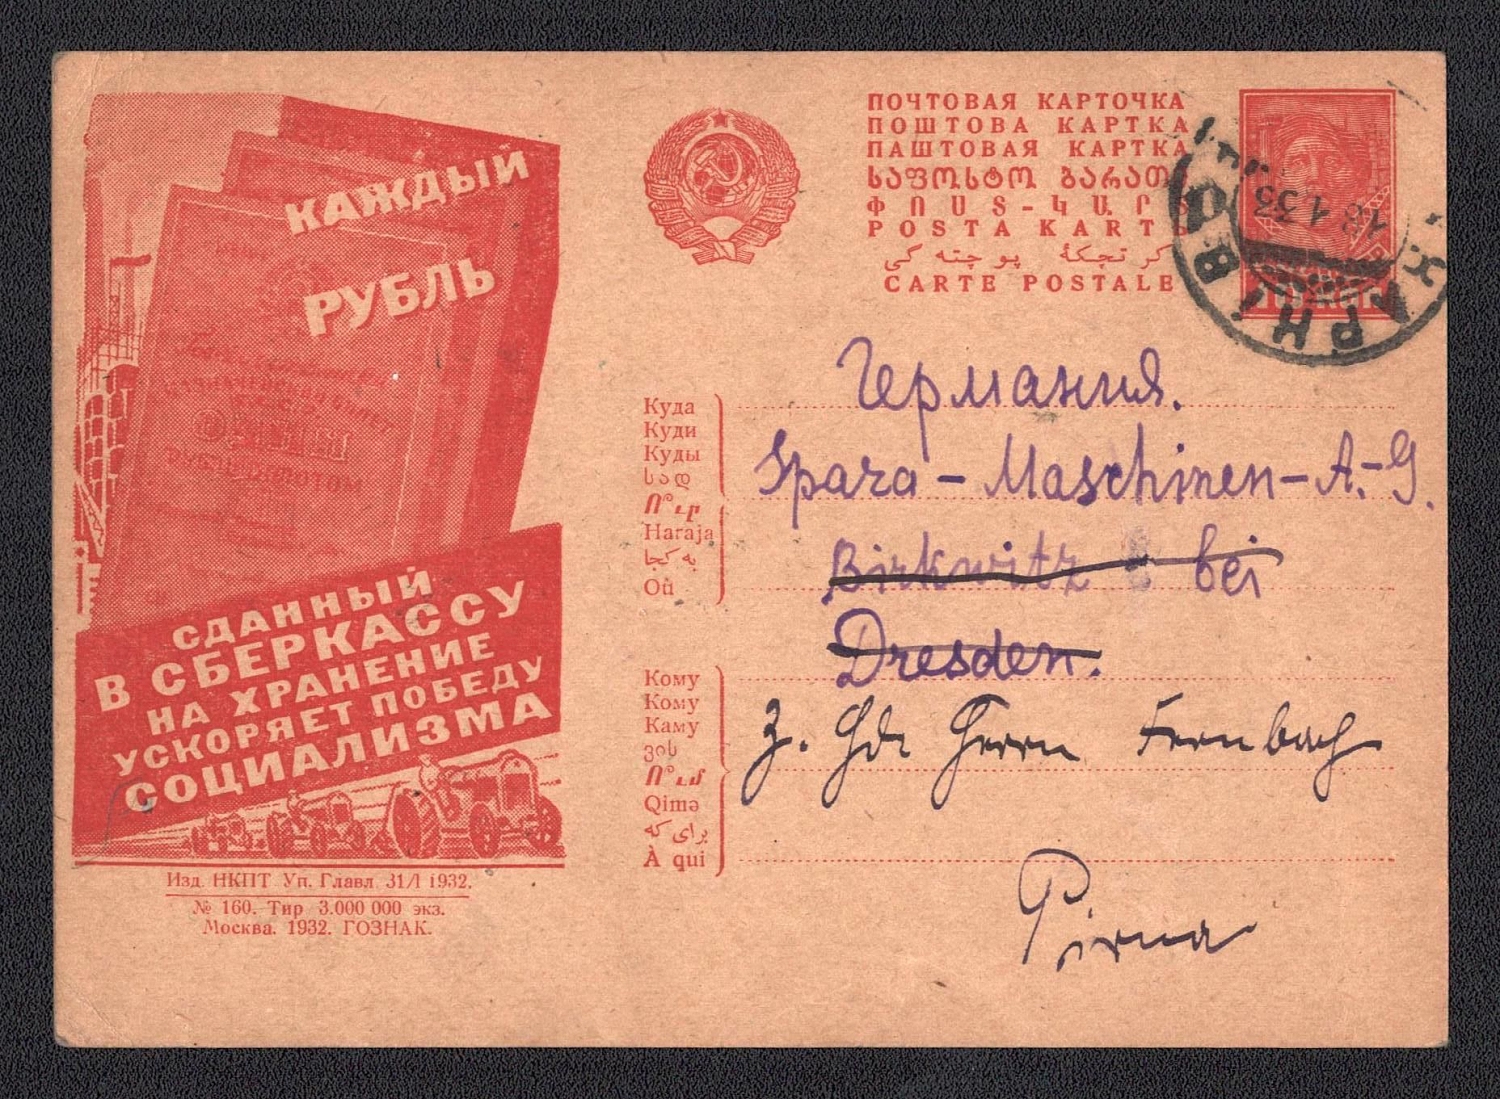 КАЖДЫЙ
РУБЛЬ
ОДИН
СДАННЫЙ
В СБЕРКАССУ
НА ХРАНЕНИЕ
УСКОРЯЕТ ПОБЕДУ
СОЦИАЛИЗМА
Изд. НКПТ Уп. Главл. 31/I 1932.
№ 160. Тир 3.000 000 экз.
Москва. 1932. ГОЗНАК.
ПОЧТОВАЯ КАРТОЧКА
ПОШТОВА КАРТКА
ПАШТОВАЯ КАРТКА
ႱႠႴႭႱႲႭ ბარათი
ՓՈՍՏ-ԿԱՐՏ
POSTA KARTЬ
CARTE POSTALE
ХАРКІВ
18 1 33
Куда
Куди
Куды
სად
Ո՞ւր
Haraja
به کجا
Où
Германия.
Spara - Maschinen - A.-G.
Birkwitz bei
Dresden.
Кому
Кому
Каму
ვის
Ո՞ւմ
Qimə
برای که
À qui
z. Hd. Herrn Fernbach
Pirna